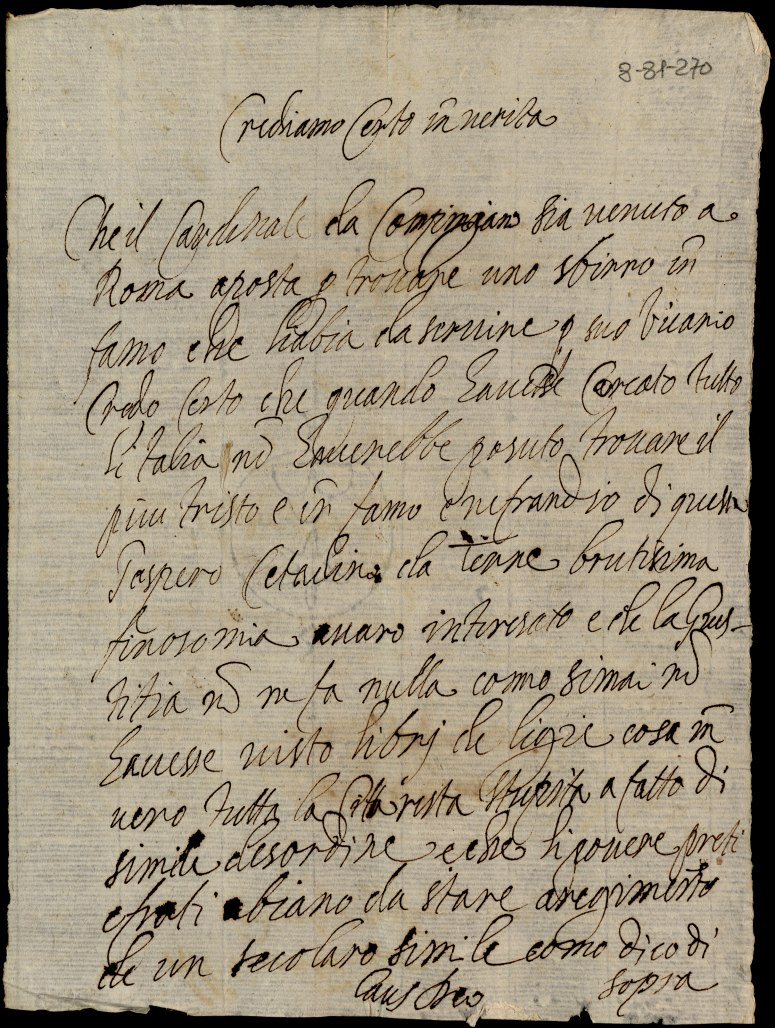 8-81-270
Crediamo Certo in verita
Che il Cardinale da sia venuto a
Roma aposta p trovare uno sbirro in
famo che habia da servire p suo Vicario
Credo Certo che quando havesse Cercato tutto
L'italia nō haverebbe posuto trovare il
piu tristo e in famo e nefrandsio di questa
Gaspero Cetadino da Terne brutisima
finosomia avaro interesato e de la Gus-
titia nō ne fa nulla como si mai nō
havesse visto librj de ligie cosa in
vero tutta la Citta resta stupita a fatto di
simile desordine e che li povere preti
e frati abiano da stare a regimento
de un secolaro simile como dico di
sopra